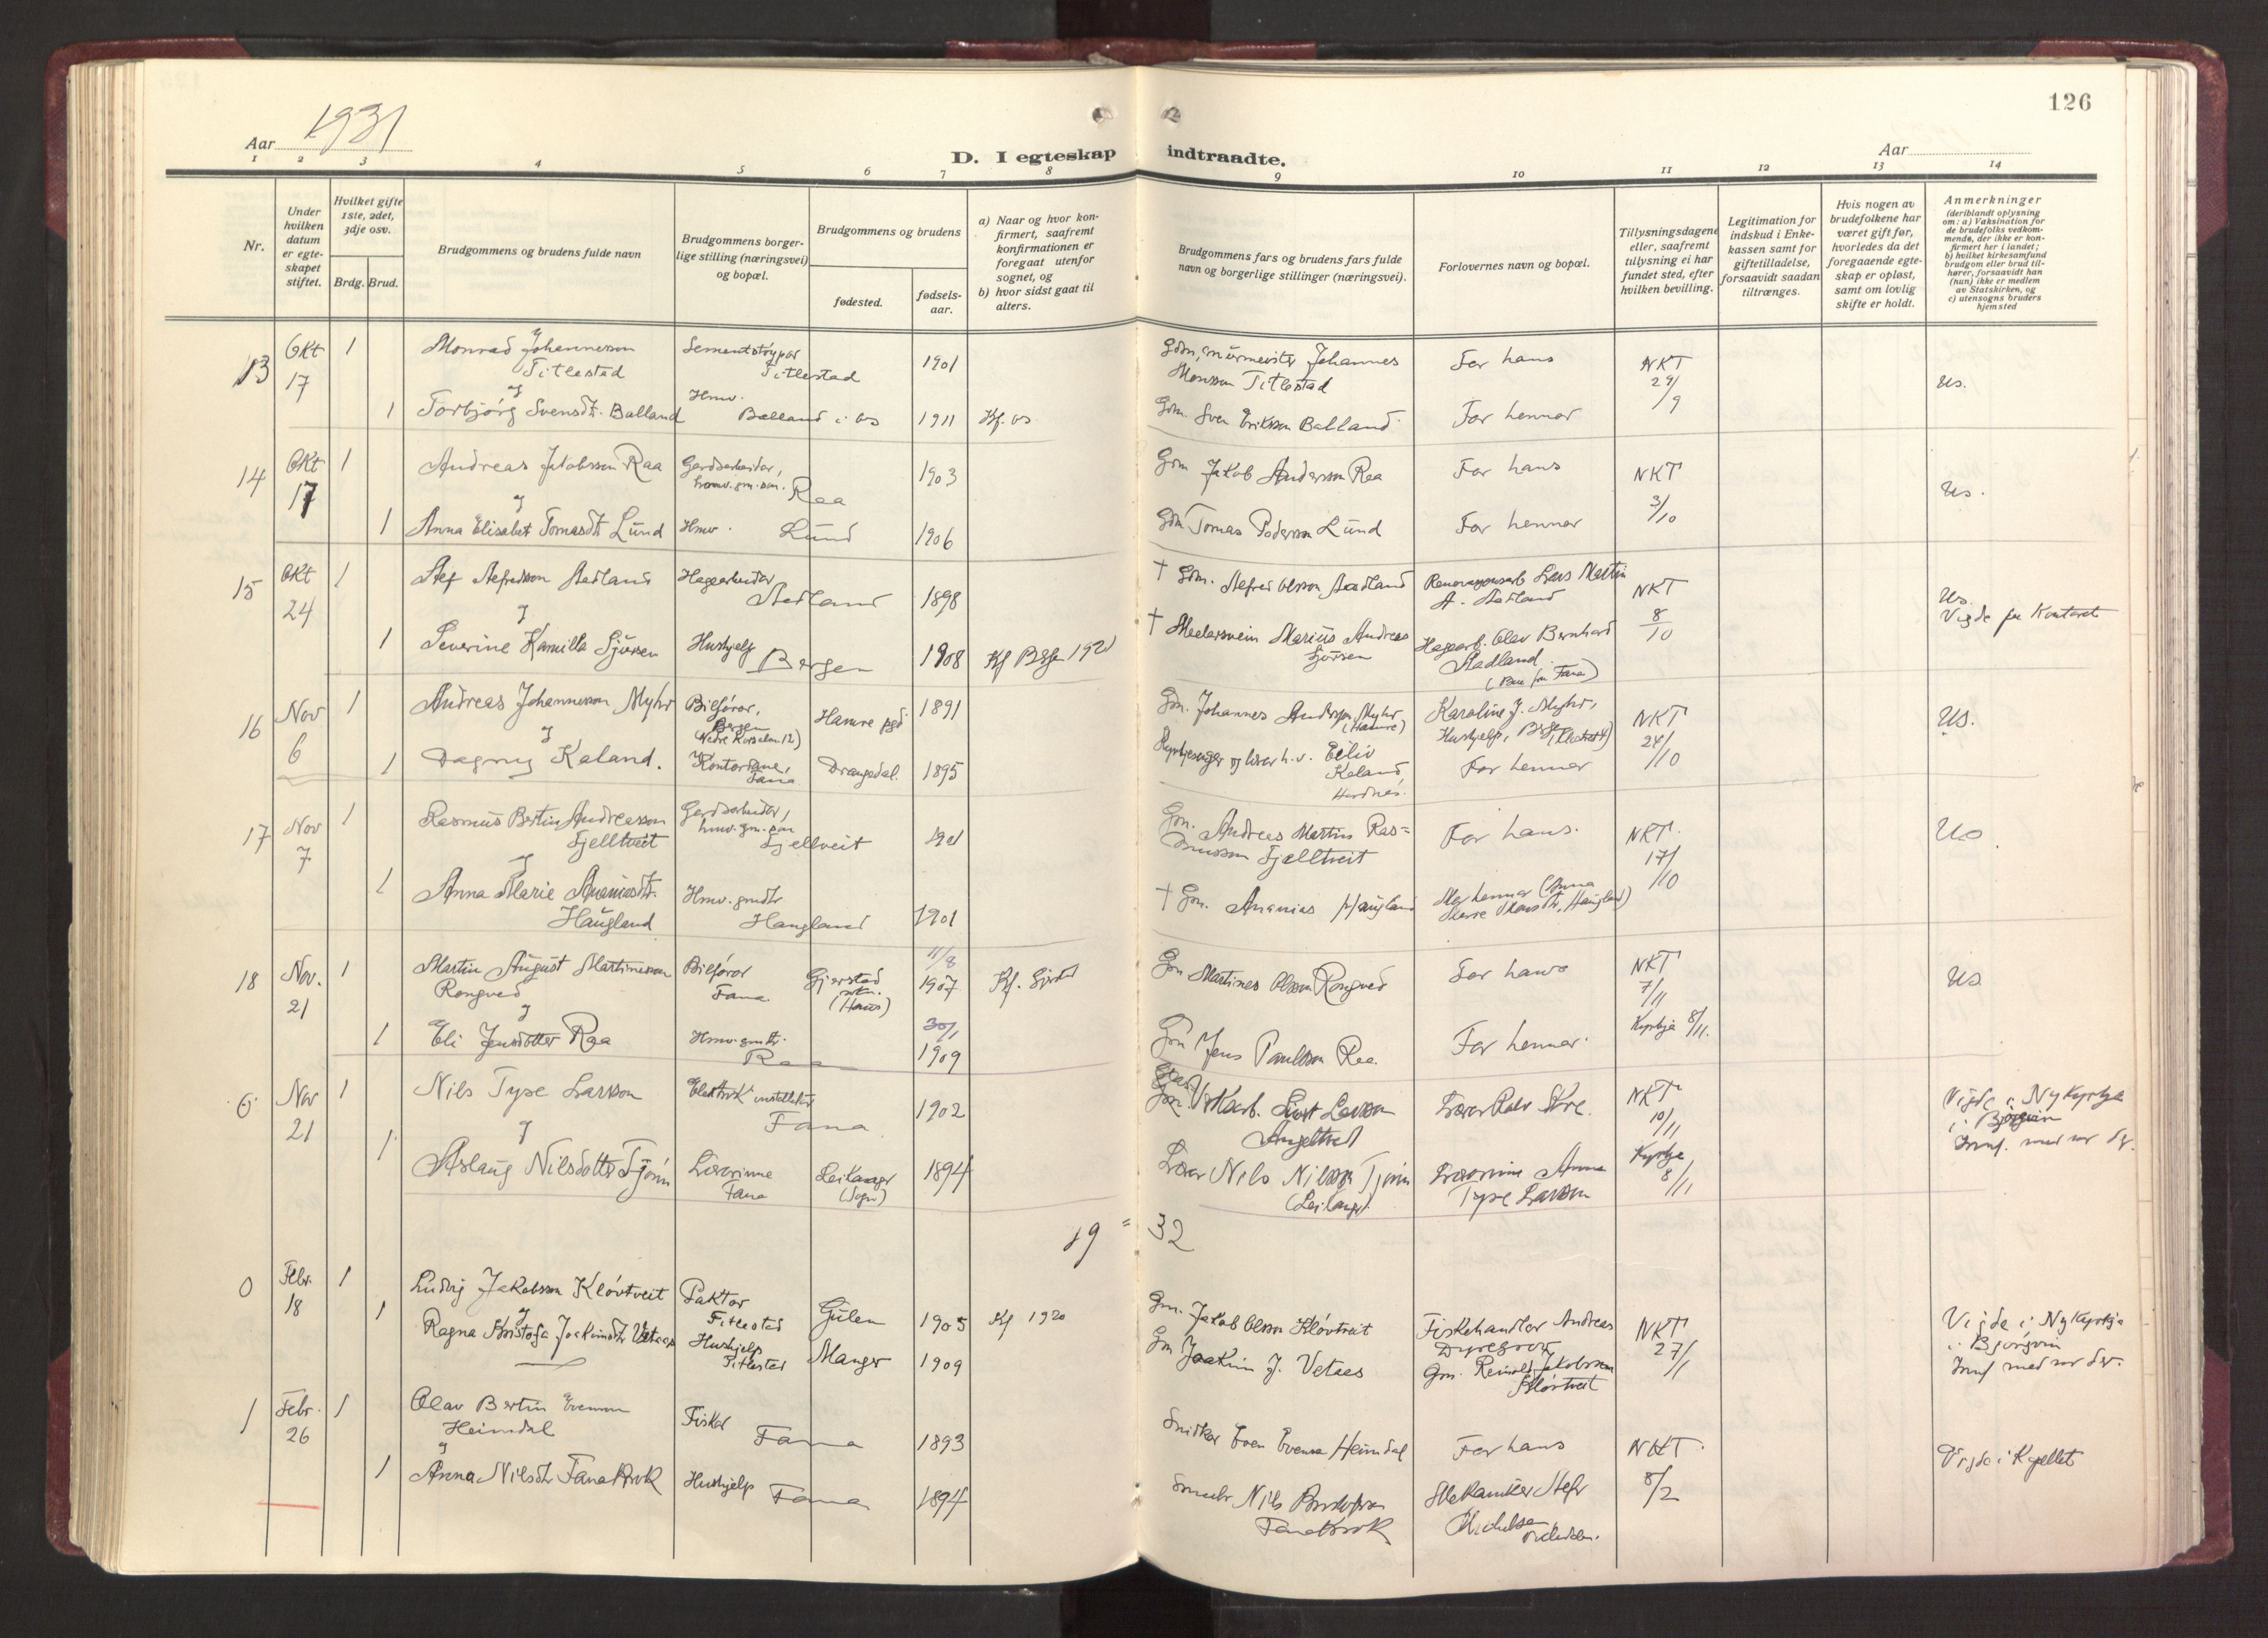 126
Aar 1931
D. I egteskap indtraadte.
Aar
1 2 3 4 5 6 7 8 9 10 11 12 13 14
Nr.
Under hvilken datum er egte-skapet stiftet.
Hvilket gifte 1ste, 2det, 3dje osv.
Brdg. Brud.
Brudgommens og brudens fulde navn
Brudgommens borger-lige stilling (næringsvei) og bopæl.
Brudgommens og brudens
fødested.
fødsels-aar.
a) Naar og hvor kon-firmert, saafremt konfirmationen er foregaat utenfor sognet, og
b) hvor sidst gaat til alters.
Brudgommens fars og brudens fars fulde navn og borgerlige stillinger (næringsvei).
Forlovernes navn og bopæl.
Tillysningsdagene eller, saafremt tillysning ei har fundet sted, efter hvilken bevilling.
Legitimation for indskud i Enke-kassen samt for giftetilladelse, forsaavidt saadan tiltrænges.
Hvis nogen av brudefolkene har været gift før, hvorledes da det foregaaende egte-skap er opløst, samt om lovlig skifte er holdt.
Anmerkninger (deriblandt oplysning om: a) Vaksination for de brudefolks vedkom-mende, der ikke er kon-firmert her i landet; b) hvilket kirkesamfund brudgom eller brud til-hører, forsaavidt han (hun) ikke er medlem av Statskirken, og c) utensogns bruders hjemsted
13 Okt 17 1 Monrad Johannesson Titlestad Sementstøypar Titlestad 1901 Gdm, mürmeister Johannes Monsson Titlestad Far hans NKT 24/9 Us.
og
1 Torbjørg Svensdtr. Balland Hmv. Balland i Os 1911 Kf. Os Gdm. Sven Eriksson Balland Far hennar
14 Okt 17 1 Andreas Jakobsson Raa Gardsarbeidar, hmv. gm. son. Raa 1903 Gdm Jakob Andersson Raa Far hans NKT 3/10 Us.
og
1 Anna Elisabet Tomasdtr Lünd Hmv. Lünd 1906 Gdm Tomas Pedersson Lünd Far hennar
15 Okt 24 1 Alf Alfredsson Aadland Hagearbeidar Aadland 1898 † Gdm. Alfred Olsson Aadland Lars Martin A. Aadland NKT 8/10 Us. Vigde paa Kontoret
og
1 Severine Kamilla Sjürsen Hushjelp Bergen 1908 Kf Bergen 192 † Marius Andreas Sjürsen Hagearb. Olav Bernhard Aadland
16 Nov 6 1 Andreas Johannesson Myhr Bilførar, Bergen (Nedre Korsalm 12) Hamre pgd 1891 Gm. Johannes Andersson Myhr (Hamre) Karoline J. Myhr, Hushjelp, Bergen NKT 24/10 Us.
og
1 Dagny Kaland. Kontordame, Fana Drangedal. 1895 Kyrkjesongar og lærar h.v. Eiliv Kaland, Far hennar
17 Nov 7 1 Rasmus Bertin Andreasson Fjelltveit Gardsarbeidar, hmv. gm. son Fjelltveit 1901 Gm. Andreas Martin Ras=musson Fjelltveit Far hans. NKT. 17/10 Us
og
1 Anna Marie Ananiasdtr. Haugland Hmv. gmdtr Haugland 1901 † Gm. Ananias Haugland Mor hennar (Anna Marie Haugland)
18 Nov. 21 1 Martin August Martinesson Rongved Bilførar Fana Gjerstad sokn. (Haus) 11/8 1907 Kf. Gjerstad Gm Martines Olsson Rongved Far hans NKT 7/11 Us
og
1 Eli Jensdotter Raa Hmv. gmdtr. Raa 30/1 1909 Gm Jens Paulsson Raa. Far hennar. Kyrkja 8/11.
0. Nov 21 1 Nils Type Larsson Elektrisk installatør Fana 1902 Larsson NKT 10/11 Vigde i Nykyrkja i Bjørgvin Innf. med nr der.
og
1 Aslaug Nilsdotter Tjønn Lærarinne Fana Leikanger (Sogn) 1894 Lærar Nils Nilsson Tjønn (Leikanger). Lærarinne Anna Type Larsson Kyrkja 8/11
19 = 32
0 Febr. 18 1 Ludvig Jakobsson Kløvtveit Faktor Titlestad Gulen 1905 Kf 1920 Gm. Jakob Olsson Kløvtveit Fiskehandlar Andreas NKT 27/1 Vigde i Nykyrkja i Bjørgvin Innf med nr der.
og
1 Ragna Kristofa Joakimsdtr Vetaas Hushjelp Titlestad Manger 1909 Gm Joakim J. Vetaas Gm. Reinold Jakobsson Kløvtveit
1 Febr. 26 1 Olav Bertin Evensen Heimdal Fiskar Fana 1893 Snikkar Even Evensen Heimdal Far hans NKT. 8/2 Vigde i Kapellet
og
1 Anna Nilsdtr Fanakrok Hushjelp Fana 1894 Nils Fanakrok Mekanikar